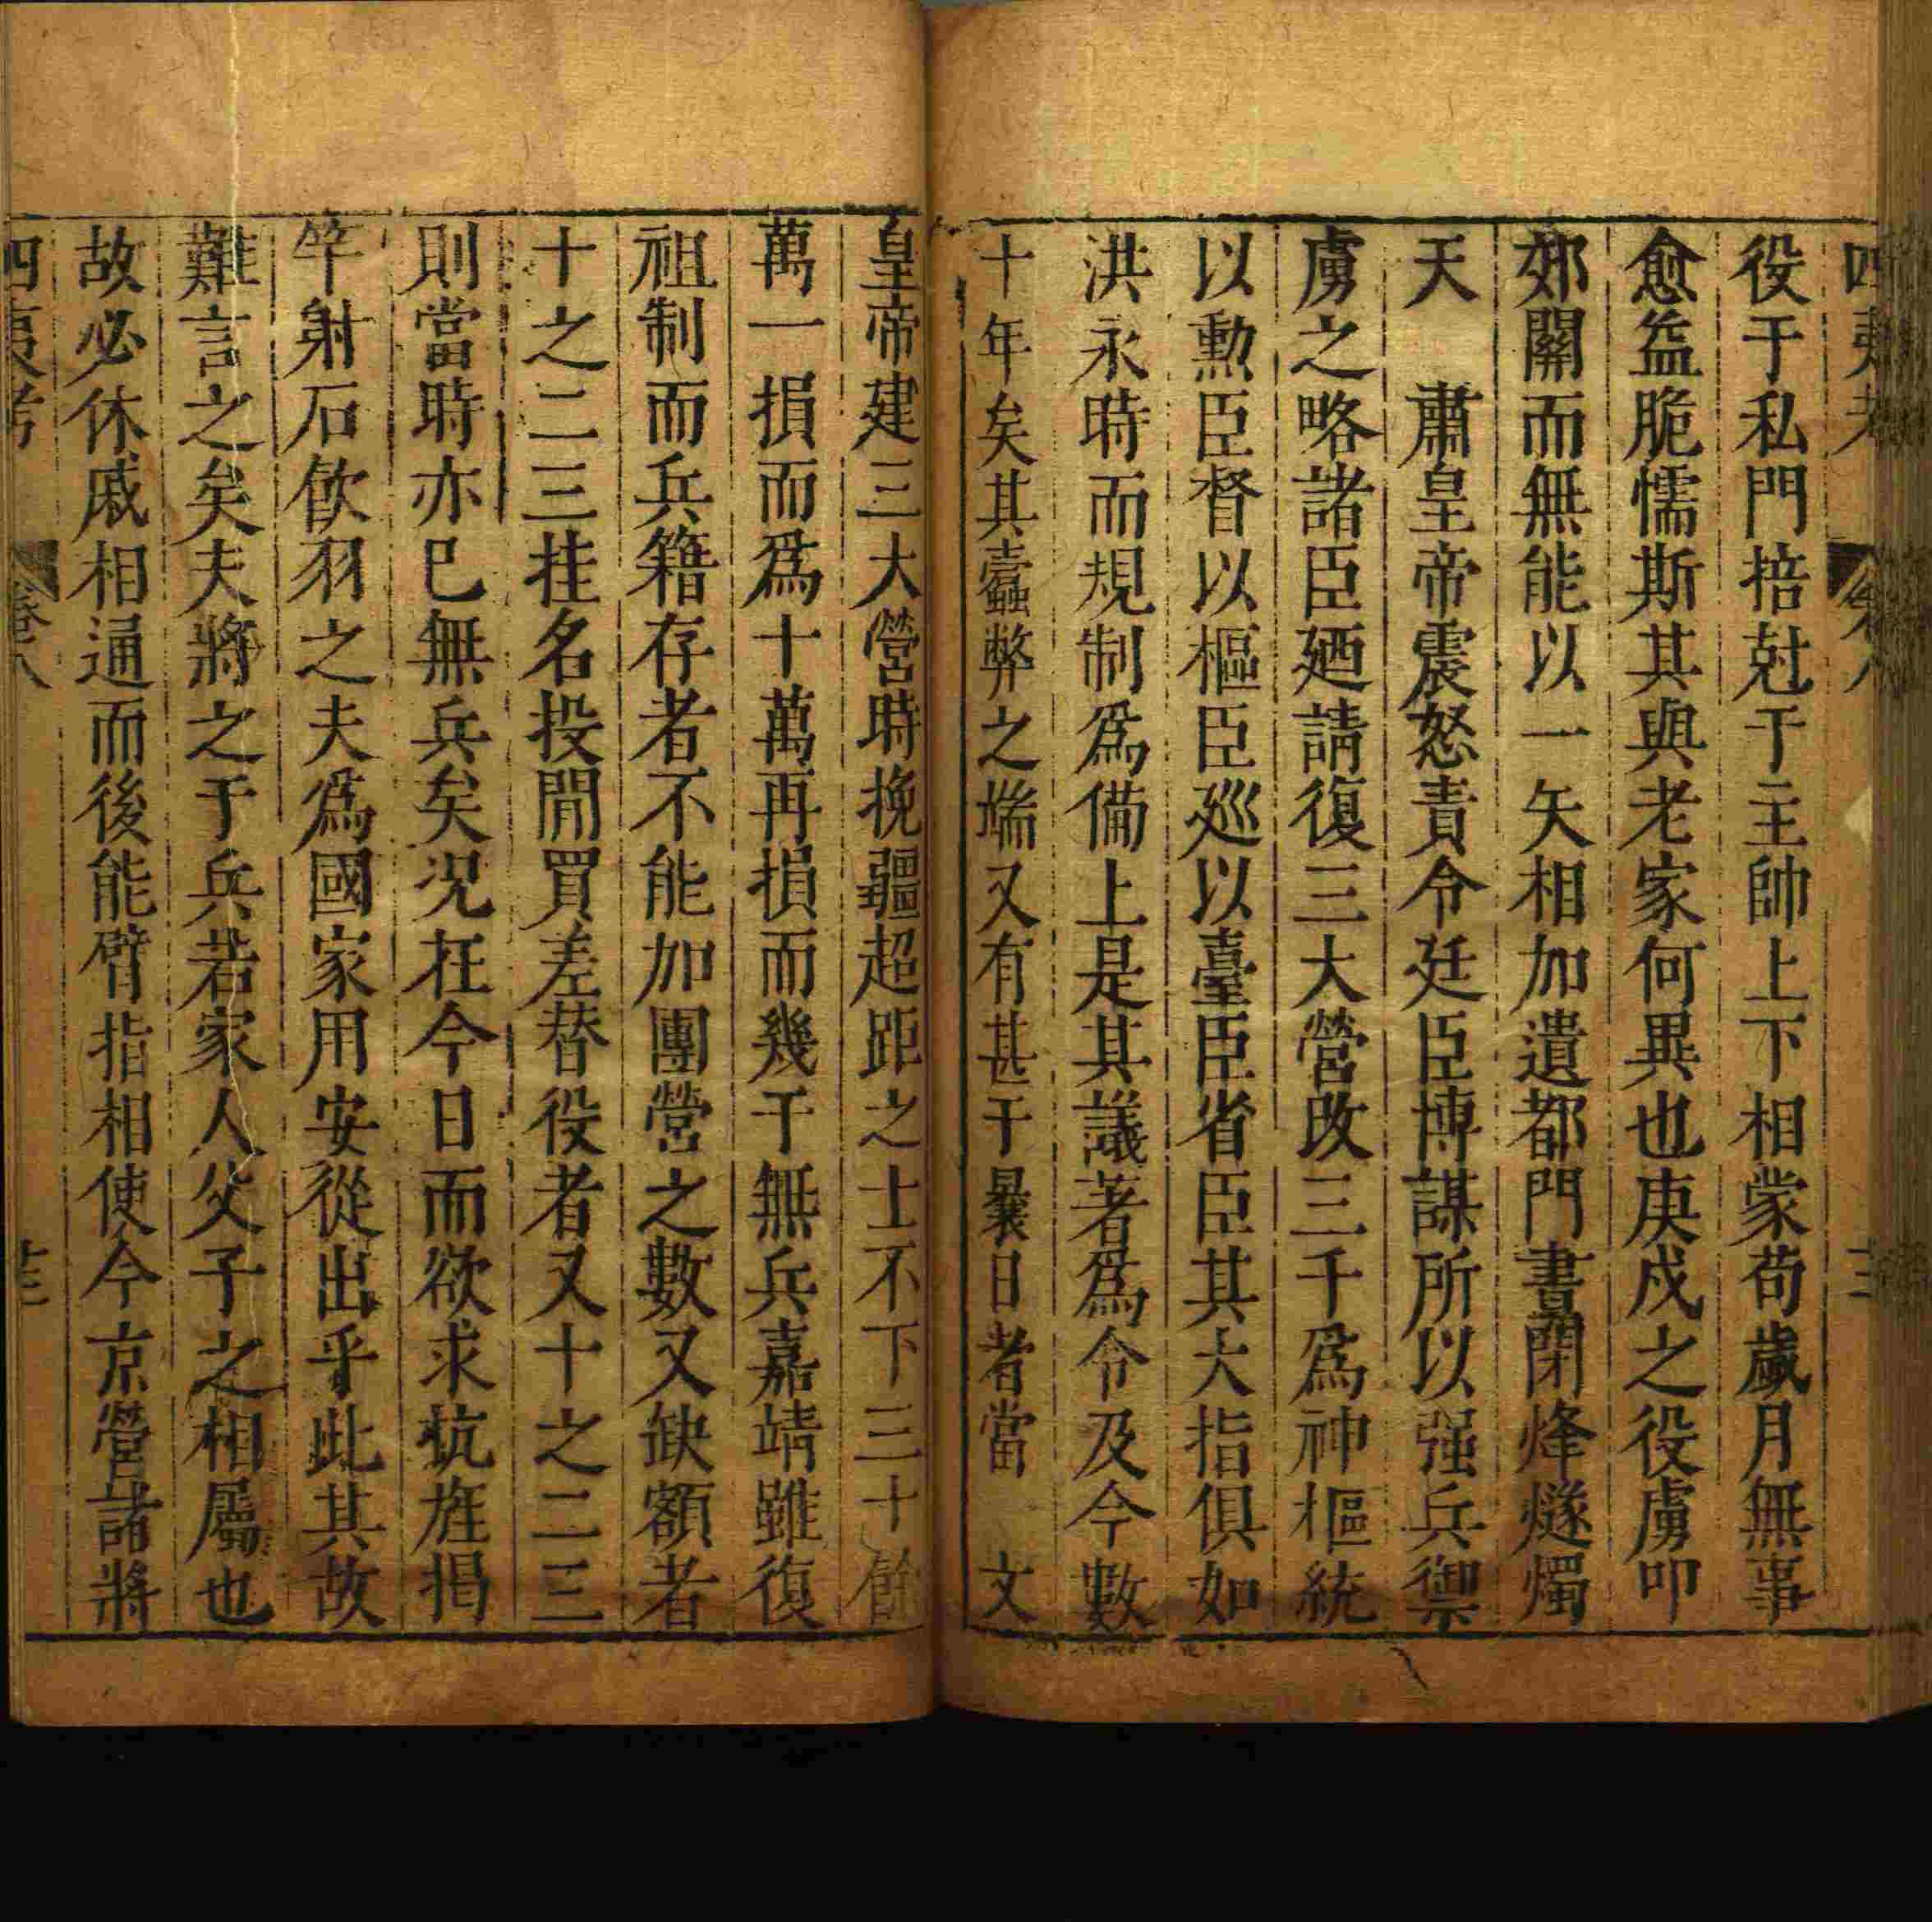 四夷考 卷八 十二
役于私門掊尅于主帥上下相蒙苟歲月無事
愈益脆懦斯其與老家何異也庚戍之役虜叩
郊關而無能以一矢相加遺都門晝閉烽燧燭
天　肅皇帝震怒責令廷臣博謀所以强兵禦
虜之略諸臣廼請復三大營改三千爲神樞統
以勲臣督以樞臣廵以臺臣省臣其大指俱如
洪永時而規制爲備上是其議著爲令及今數
十年矣其蠧弊之端又有甚于曩日者當　文
皇帝建三大營時挽彊超距之士不下三十餘
萬一損而爲十萬再損而幾于無兵嘉靖雖復
祖制而兵籍存者不能加團營之數又缺額者
十之二三挂名投閒買差替役者又十之二三
則當時亦巳無兵矣况在今日而欲求抗旌揭
竿射石飮羽之夫爲國家用安從出乎此其故
難言之矣夫將之于兵若家人父子之相屬也
故必休戚相通而後能臂指相使今京營諸將
四夷考 卷八 十三